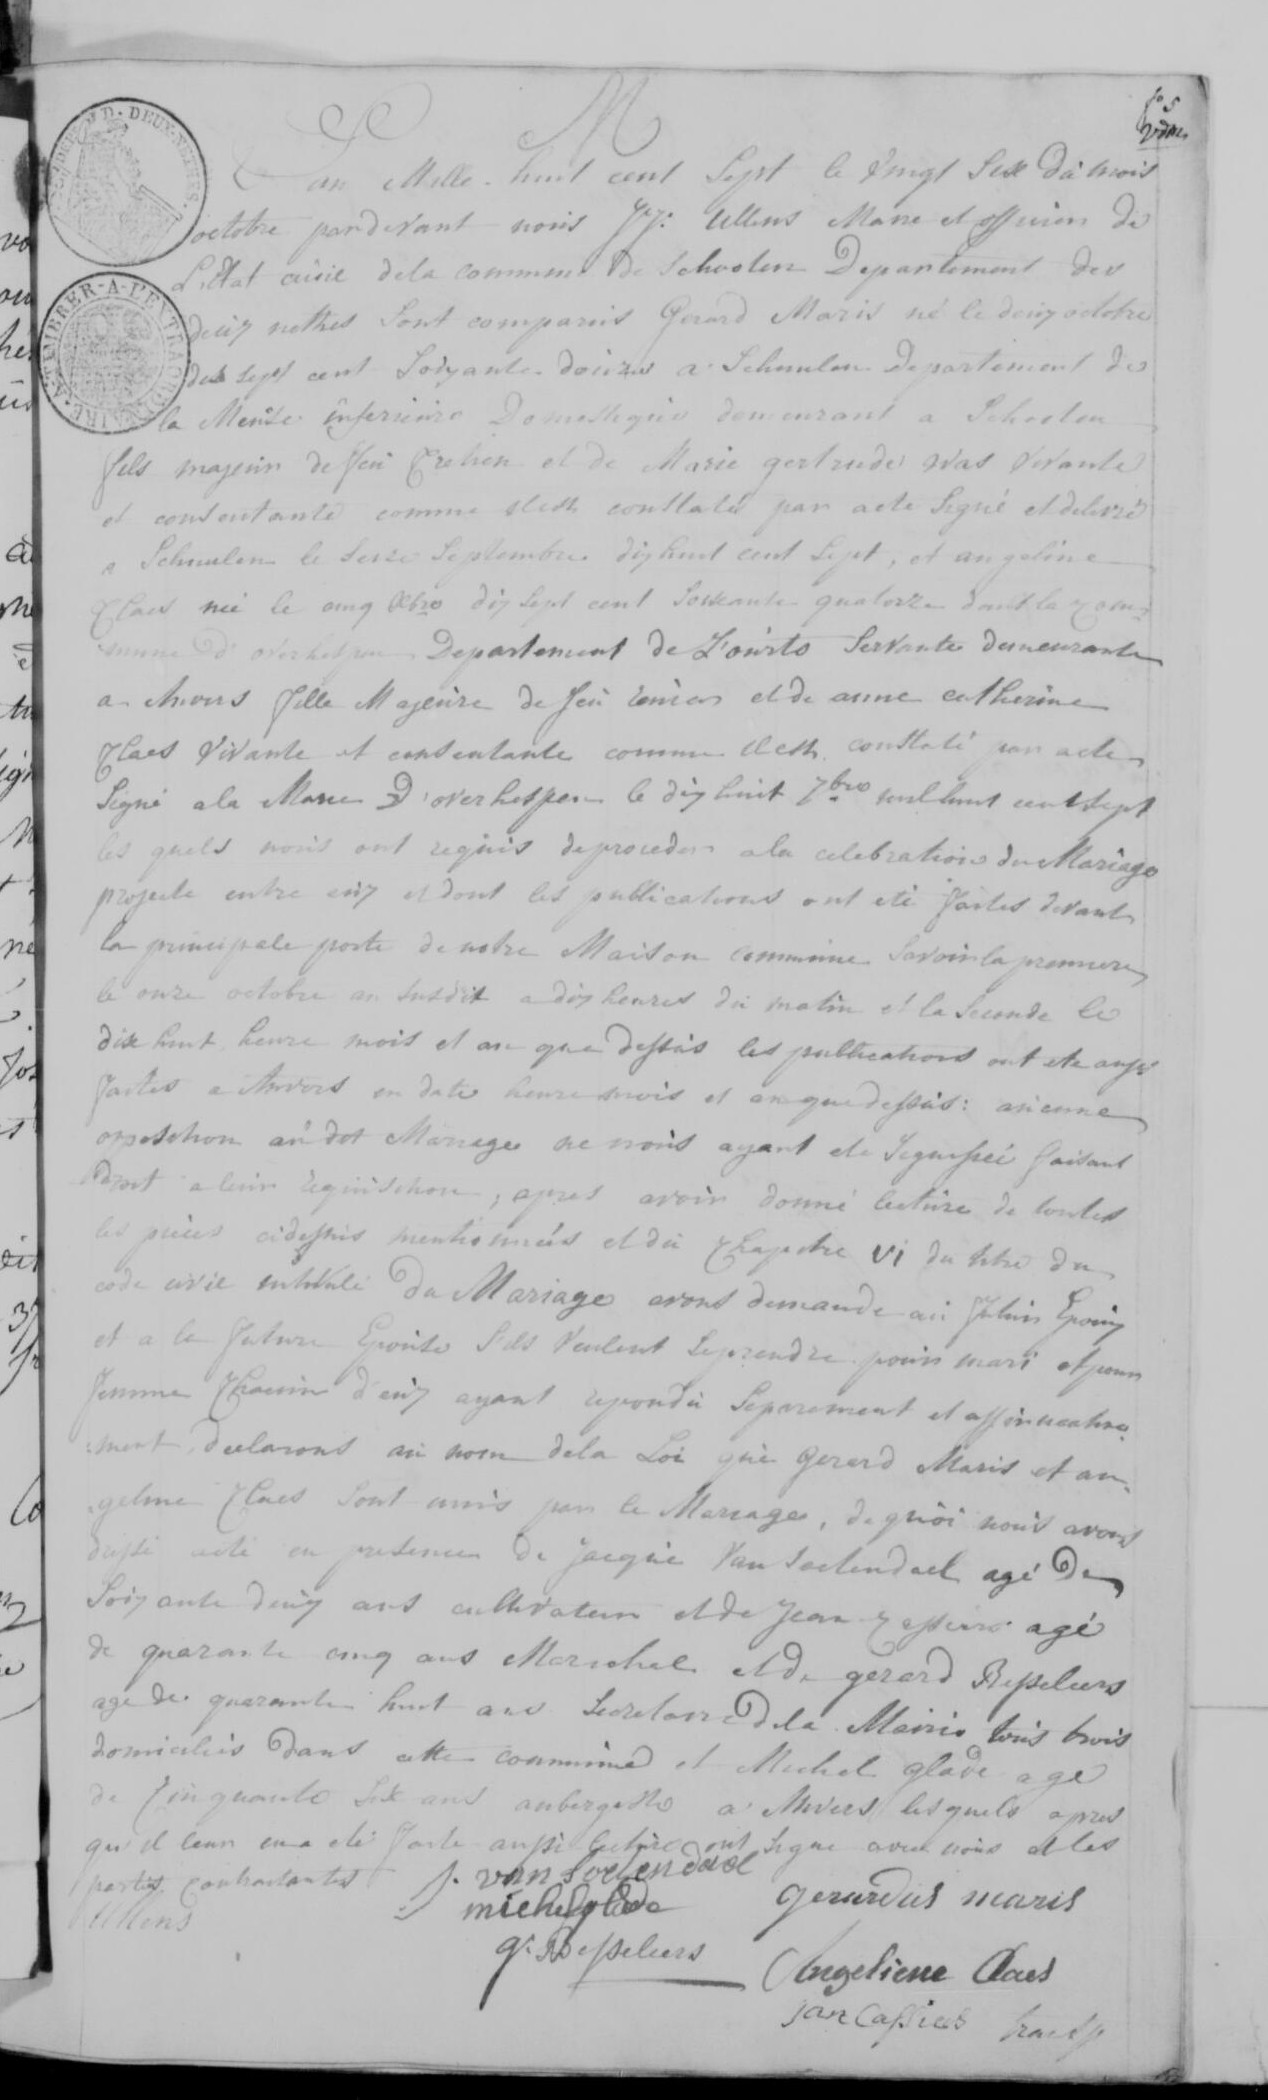 f° 5
M
L'an Mille huit cent Sept le Vingt Six dú mois
octobre pardevant noús J: J: Ullens Maire et officier de
L'État civil dela commune de Schooten Departement des
deúx nethes Sont comparús Gerard Maris né le deúx octobre
dix sept cent Soixante doúze a Schuulen Departement de
la Meúse inferieúre Domestique demeurant a Schooten
fils majeúr de feú Cretien et de Marie gertrude Vas vivante
et consentante comme il est constaté par acte Signé et delivré
a Schuulen le Seize Septembre dix huit cent Sept, et angeline
Claes née le cinq Xbre dix Sept cent Soixante quatorze dans la com=
mune D'overhespen Departement de L'oúrte Servante demeurante
a Anvers fille Majeúre de feú Renier et de anne catherine
Claes Vivante et consentante comme il est constaté par acte
Signé a la Mairie D'overhespen le dix huit 7bre mil huit cent Sept
les quels noús ont reqúis de proceder a la celebration du Mariage
projeté entre eúx et dont les publications ont eté faites devant
la principale porte de notre Maison commune Savoir la premiere
le onze octobre an susdit a dix heures dú matin et la Seconde le
dix huit heure mois et an que dessús les publications ont eté aussi
faites a Anvers en date heure mois et an que dessús: aúcune
opposition aú dit Mariage ne noús ayant eté Signifiée faisant
droit a leúr reqúisition, apres avoir donné lectúre de toutes
les pieces cidessús mentionnées et dú Chapitre VI du titre du
code civil intitulé Du Mariage avons demandé aú fútúr Epoúx
et a la future Epoúse S'ils Veulent Se prendre poúr mari et pour
femme Chacún d'eúx ayant repondú Separement et affirmative=
ment declarons aú nom dela Loi qúe Gerard Maris et an=
geline Claes Sont unis par le Mariage, de qúoi noús avons
dressé acte en presence de Jacqúe Van Soelendael agé De
Soixante deúx ans cultivateur et de Jean Cassiers agé
de quarante cinq ans Marechal et de gerard Resseleers
agé de quarante huit ans Secretaire dela Mairie toús trois
domiciliés Dans cette commúne et Michel glade agé
de Cinquante Six ans aubergiste a Anvers lesquels apres
qu'il leur en a eté faite aussi lectúre ont Signé avec noús et les
parties contractantes
J. van Soelendael
Ullens
michel glade
gerardus maris
g. Resseleers
Angeliene Claes
jan Cassiers